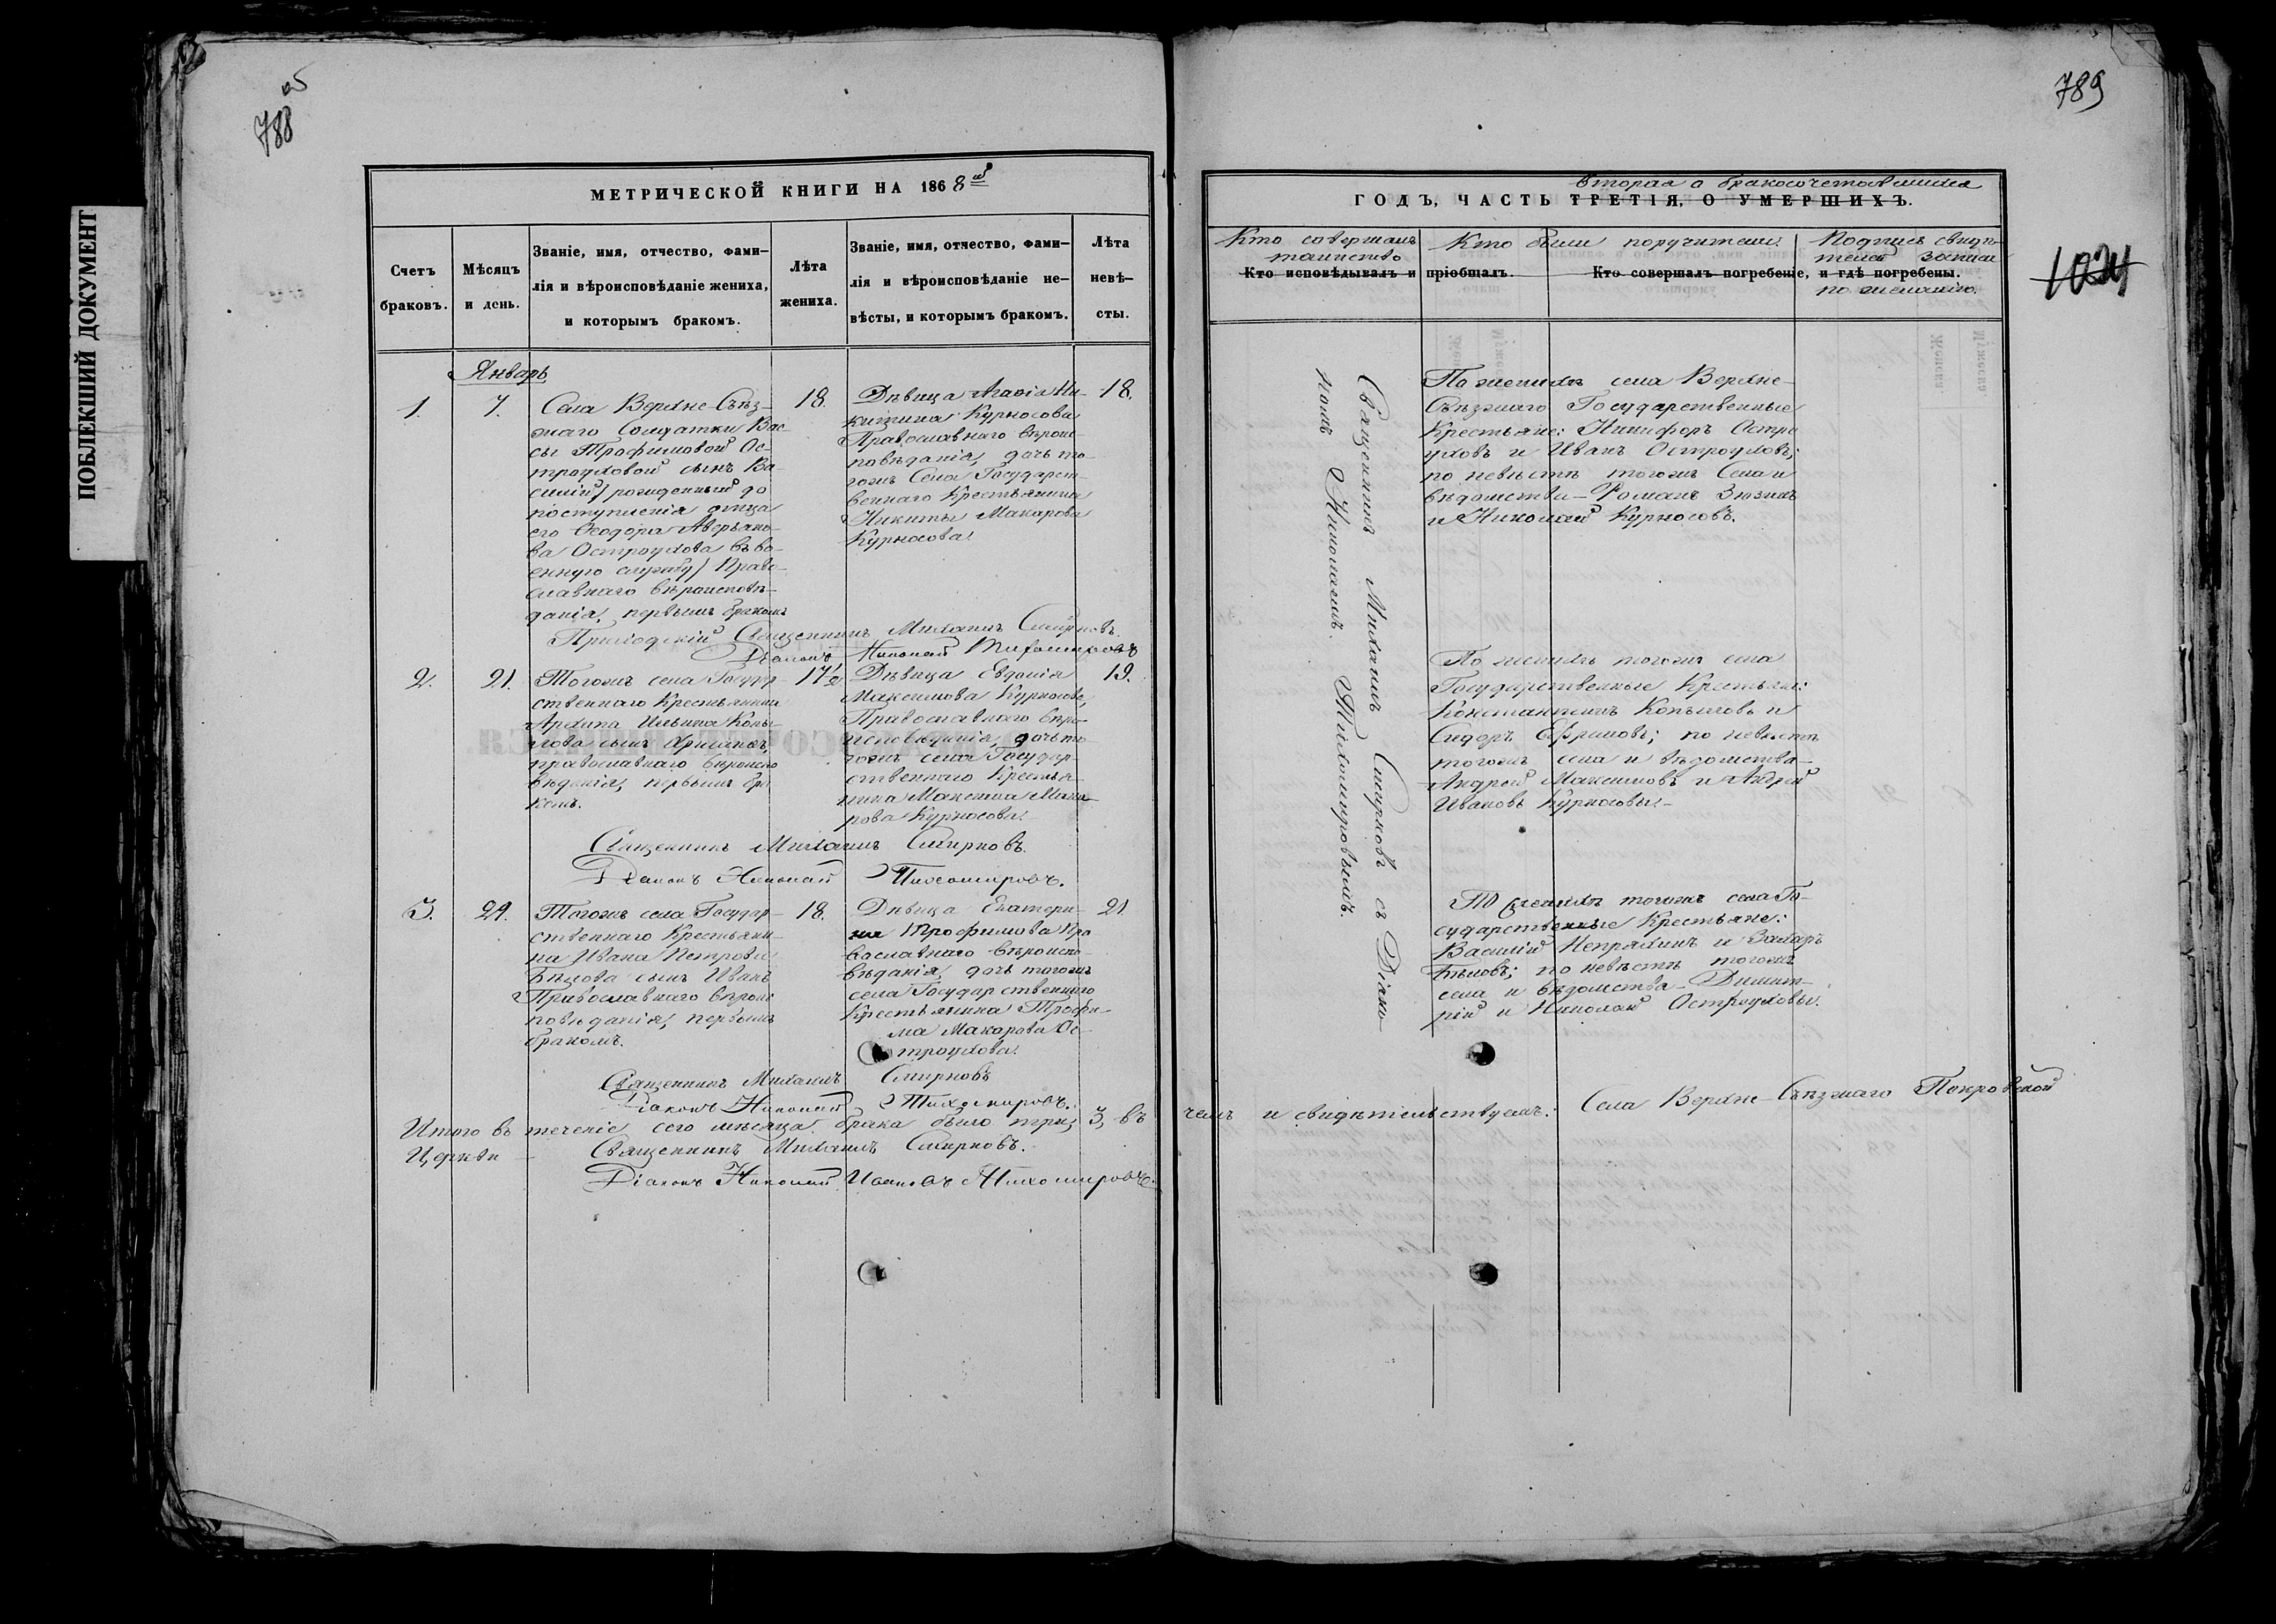 788
об
МЕТРИЧЕСКОЙ КНИГИ НА 1868й
Счетъ браковъ.
Мѣсяцъ и день.
Званіе, имя, отчество, фами-
лія и вѣроисповѣданіе жениха,
и которымъ бракомъ.
Лѣта жениха.
Званіе, имя, отчество, фами-
лія и вѣроисповѣданіе не-
вѣсты, и которымъ бракомъ.
Лѣта невѣ-
сты.
Январь
1.
7.
Села Верхне-Съѣз-
жаго Солдатки Вас
сы Трофимовой Ос-
троуховой сынъ Ва
силій / рожденный до
поступленія отца
его Ѳеодора Аверьяно-
ва Остроухова въ во-
енную службу / Право-
славнаго вѣроисповѣ-
данія, первымъ бракомъ
18.
Дѣвица Агаѳія Ни-
китина Курносова
Православнаго вѣроис-
повѣданія, дочь то-
гожъ Села Государст-
веннаго Крестьянина
Никиты Макарова
Курносова.
18.
Приходскій Священникъ Михаилъ Смирновъ.
Діаконъ Николай Тихомировъ
2.
21.
Тогожъ села Государ-
ственнаго Крестьянина
Архипа Ильина Копы-
лова сынъ
православнаго вѣроиспо
вѣданія, первымъ бра
комъ.
17½
Дѣвица Евдокія
Максимова Курносова,
Православнаго вѣро-
исповѣданія, дочь то
гожъ села Государ-
ственнаго Крестья-
нина Максима Мака-
рова Курносова.
19.
Священникъ Михаилъ Смирновъ.
Діаконъ Николай Тихомировъ.
3.
24.
Тогожъ села Государ-
ственнаго Крестьяни-
на Ивана Петрова
Бѣлова сынъ Иванъ
Православнаго вѣроис
повѣданія, первымъ
бракомъ.
18.
Дѣвица Екатери-
на Трофимова Пра
вославнаго вѣроиспо
вѣданія, дочь тогожъ
села Государственнаго
Крестьянина Трофи-
ма Макарова Ос-
троухова.
21
Священникъ Михаилъ Смирновъ
Діаконъ Николай Тихомировъ.
Итого въ теченіе сего мѣсяца брака было три, 3, въ
Церкви
Священникъ Михаилъ Смирновъ.
Діаконъ Николай Ивановъ Тихомировъ.
789
1024
вторая о бракосочетавшихся
ГОДЪ, ЧАСТЬ ТРЕТІЯ, О УМЕРШИХЪ.
Кто совершалъ
таинство
Кто были поручители.
Подпись свидѣ-
телей записи
по желанію.
Кто исповѣдывалъ и пріобщалъ.
Кто совершалъ погребеніе, и гдѣ погребены.
Священникъ Михаилъ Смирновъ съ Діако-
номъ Николаемъ Тихомировымъ.
По женихѣ села Верхне-
Съѣзжаго Государственные
Крестьяне: Никифоръ Остро
уховъ и Иванъ Остроуховъ;
по невѣстѣ тогожъ Села и
вѣдомства - Романъ Зюзинъ
и Николай Курносовъ.
По женихѣ тогожъ села
Государственные Крестьяне:
Константинъ Копыловъ и
Сидоръ Ефимовъ; по невѣстѣ
тогожъ села и вѣдомства -
Андрей Максимовъ и Андрей
Ивановъ Курносовы.
По женихѣ тогожъ села Го-
сударственные Крестьяне:
Василій Непряхинъ и Захаръ
Бѣловъ; по невѣстѣ тогожъ
села и вѣдомства - Димит-
рій и Николай Остроуховы.
чемъ и свидѣтельствуемъ: Села Верхне-Съѣзжаго Покровской
ПОБЛЕКШИЙ ДОКУМЕНТ